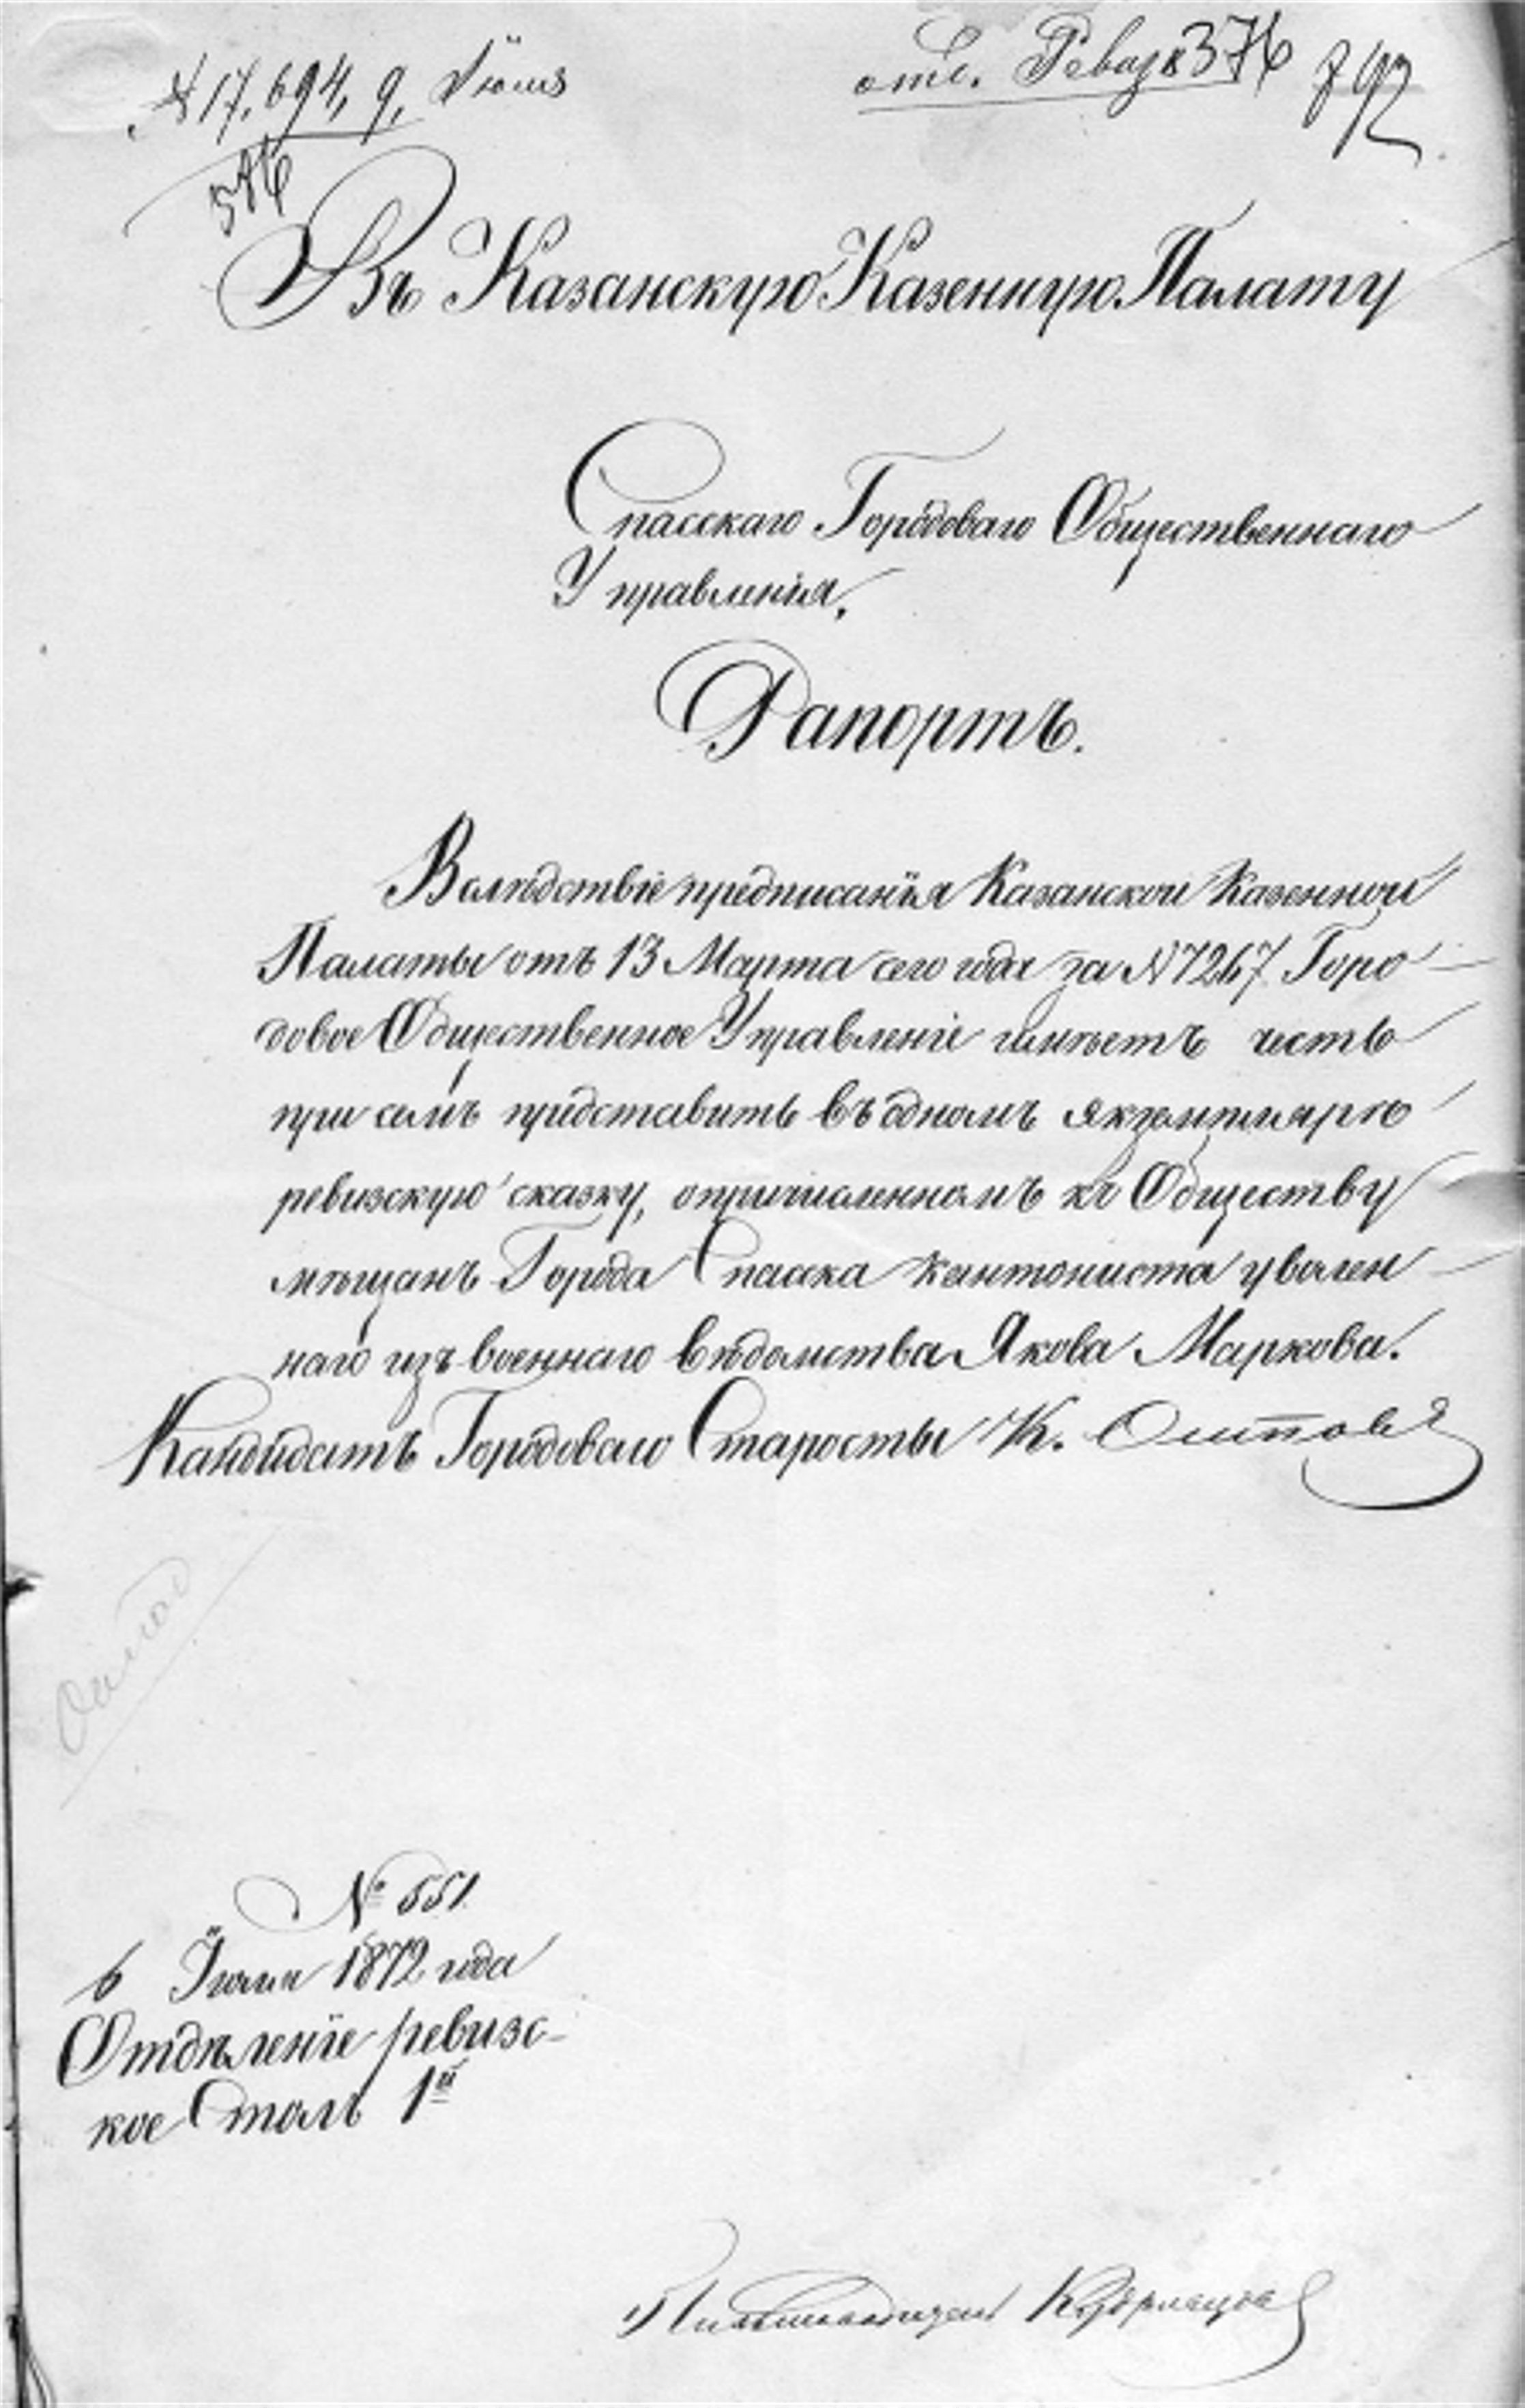 № 17,694, 9, Июля
отд. Ревиз 376 792
516
Въ Казанскую Казенную Палату
Спасскаго Городоваго Общественнаго
Управленія,
Рапортъ.
Вслѣдствіе предписанія Казанской Казенной
Палаты отъ 13 Марта сего года за № 7267 Горо
довое Общественное Управленіе имѣетъ честь
при семъ представить въ одномъ экземплярѣ
ревизскую сказку, опричисленномъ къ Обществу
мѣщанъ Города Спасска кантониста уволен
наго изъ военнаго вѣдомства Якова Маркова.
Кандидатъ Городоваго Старосты К. Осиповъ
№ 551
6 Іюля 1872 года
Отдѣленіе ревизс-
кое Столъ 1й